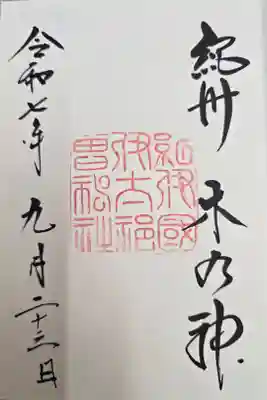 紀州 木乃神
紀伊國
伊太祁
曽神社
令和七年 九月二十三日